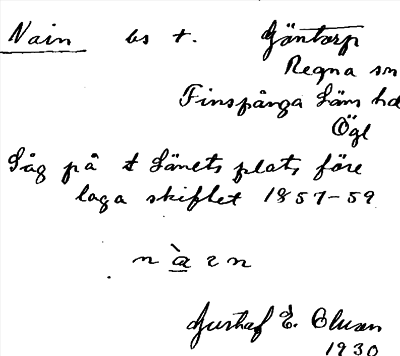 Nain bs t. Gäntorp
Regna sn
Finspånga Läns hd
Ögl
Låg på t Länets plats före
laga skiftet 1857-59
n à z n
Gustaf E. Olsson
1930